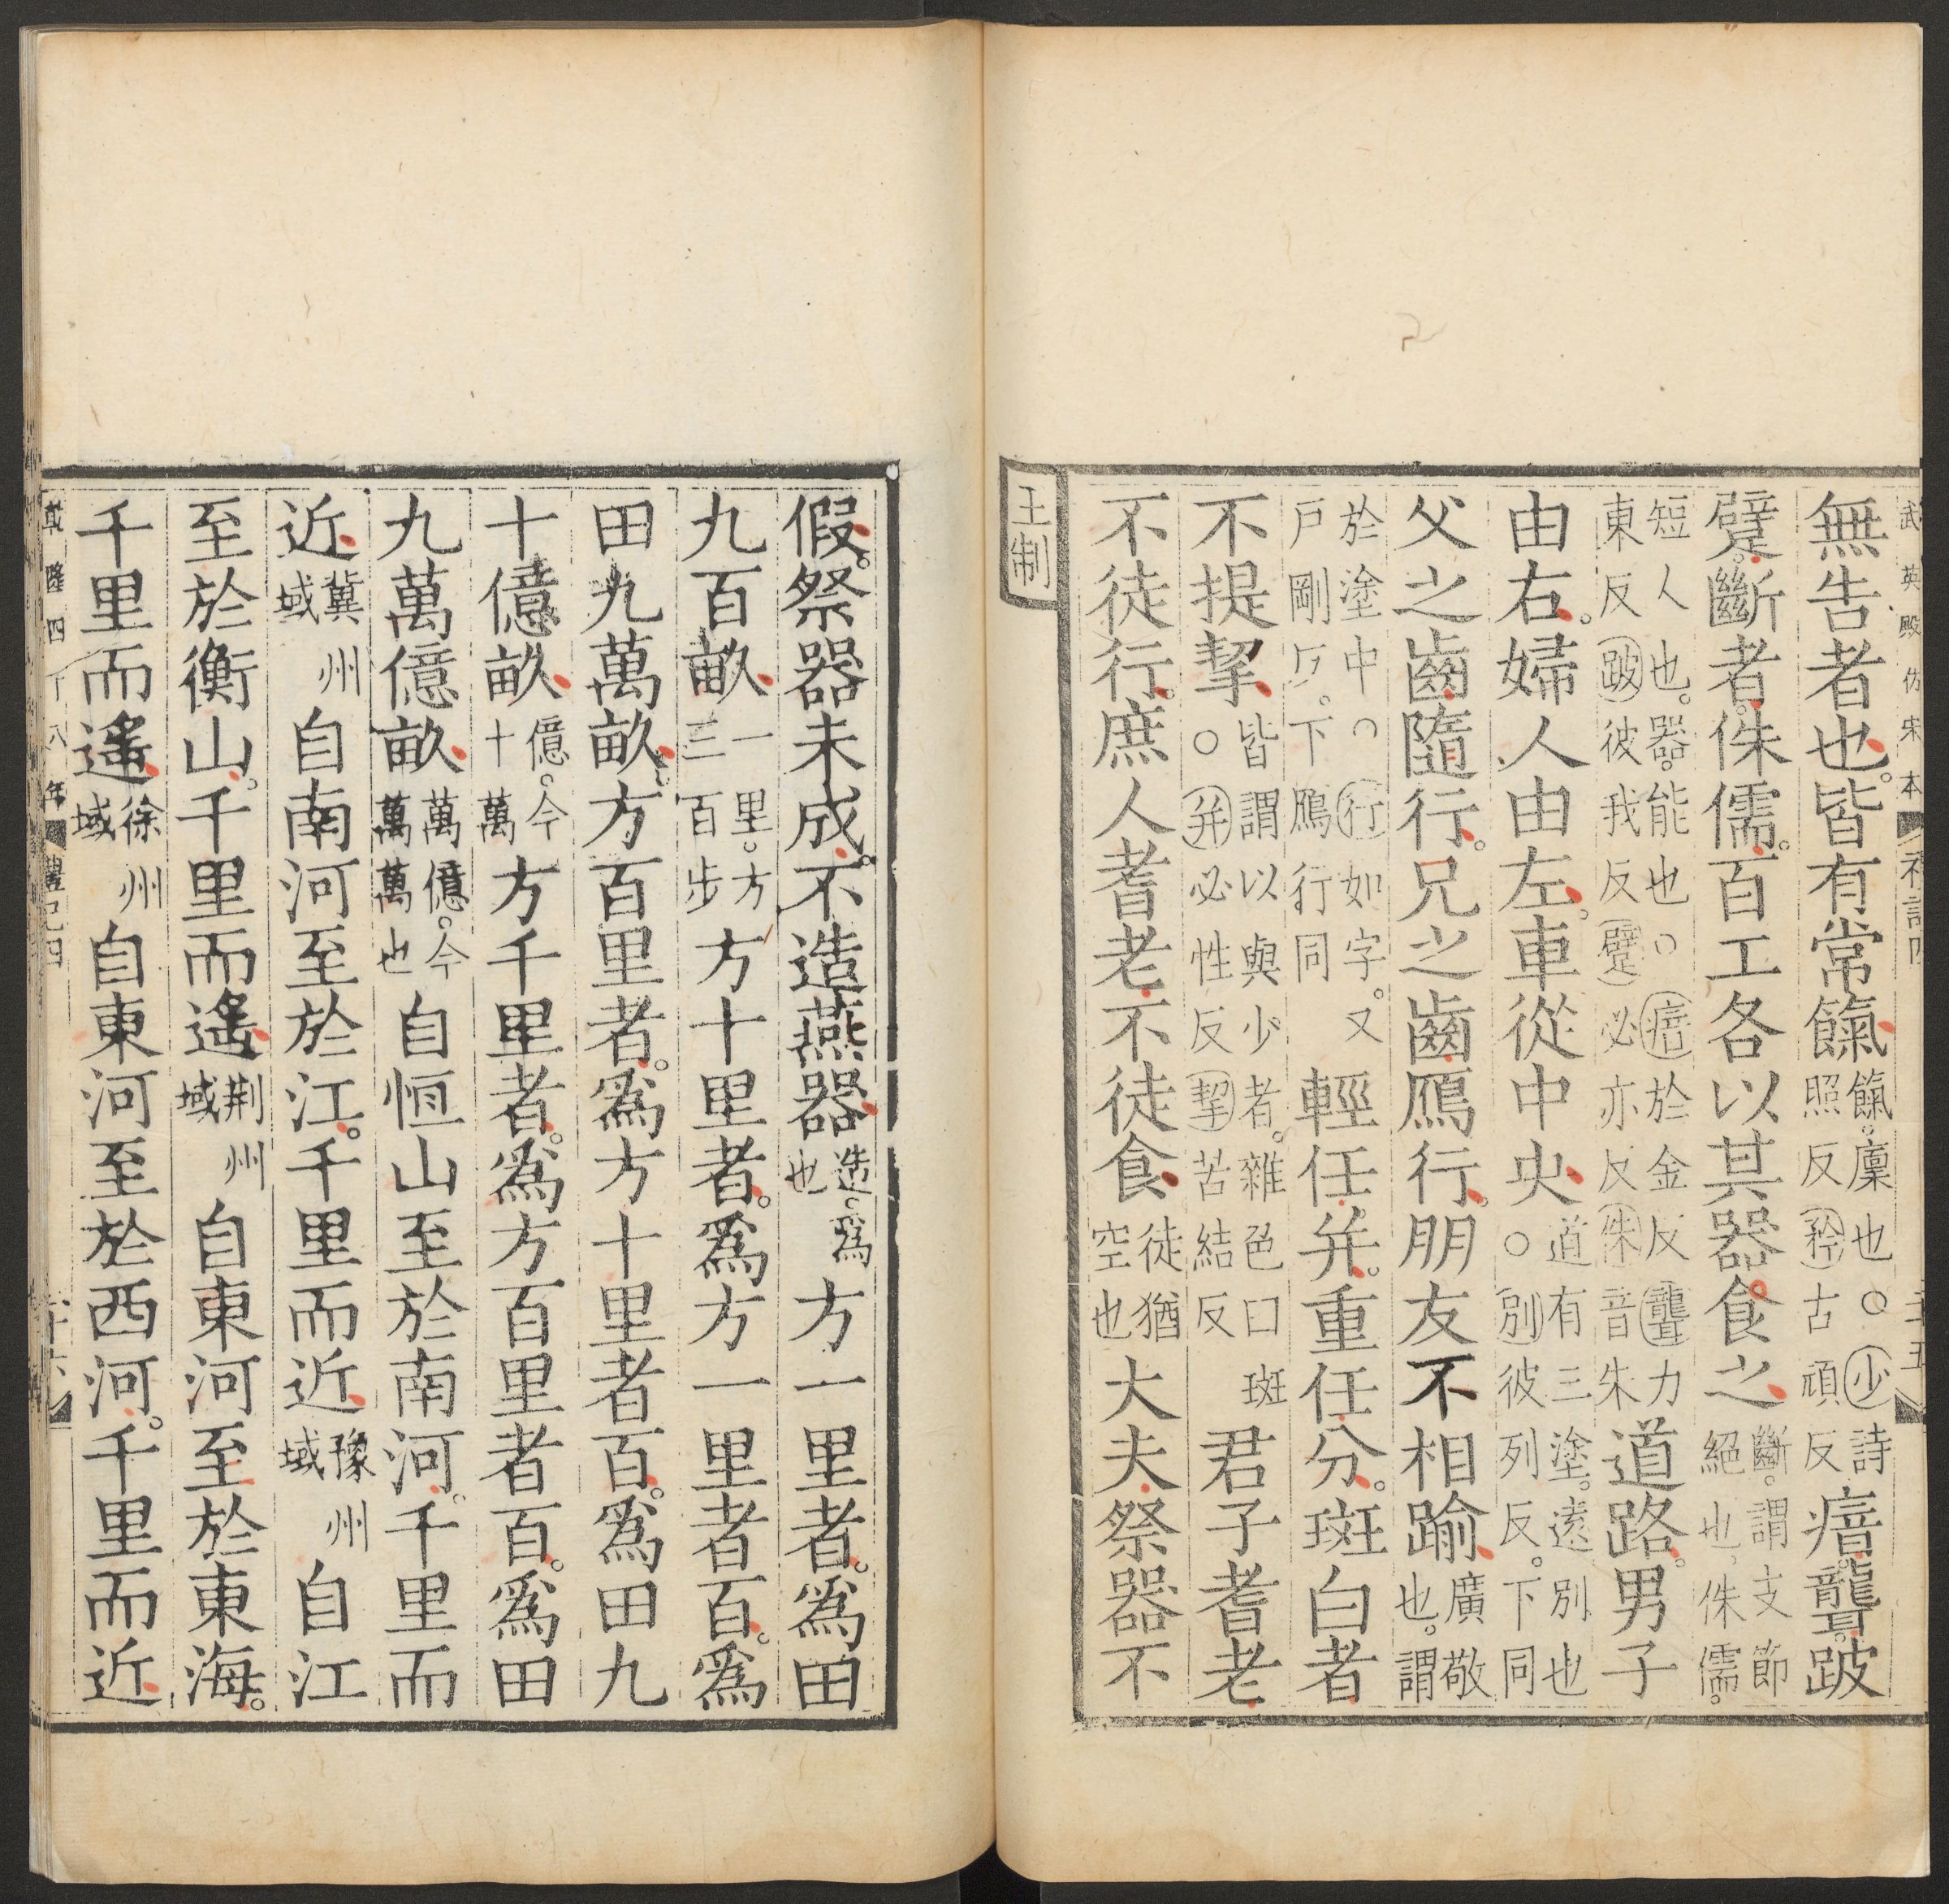 武英殿仿宋本
無告者也。皆有常餼餼。廩也○少詩照反矜古頑反瘖。聾。跛
躄。斷者。侏儒。百工各以其器食之斷。謂支節絕也。侏儒。
短人也。器。能也○瘖於金反聾力東反跛彼我反躄必亦反侏音朱道路。男子
由右。婦人由左。車從中央道有三塗。遠別也○別彼列反。下同
父之齒隨行。兄之齒鴈行。朋友不相踰廣敬也。謂
於塗中○行如字。又戶剛反。下鴈行同輕任并。重任分。斑白者
不提挈皆謂以與少者。雜色曰斑○并必性反挈苦結反君子耆老
不徒行。庶人耆老不徒食徒猶空也大夫祭器不
王制
假。祭器未成。不造燕器造。爲也方一里者。爲田
九百畝一里。方三百步方十里者。爲方一里者百。爲
田九萬畝。方百里者。爲方十里者百。爲田九
十億畝億。今十萬方千里者。爲方百里者百。爲田
九萬億畝萬億。今萬萬也自恆山至於南河。千里而
近冀州域自南河至於江。千里而近豫州域自江
至於衡山。千里而遙荆州域自東河至於東海。
千里而遙徐州域自東河至於西河。千里而近
乾隆四十八年
禮記四